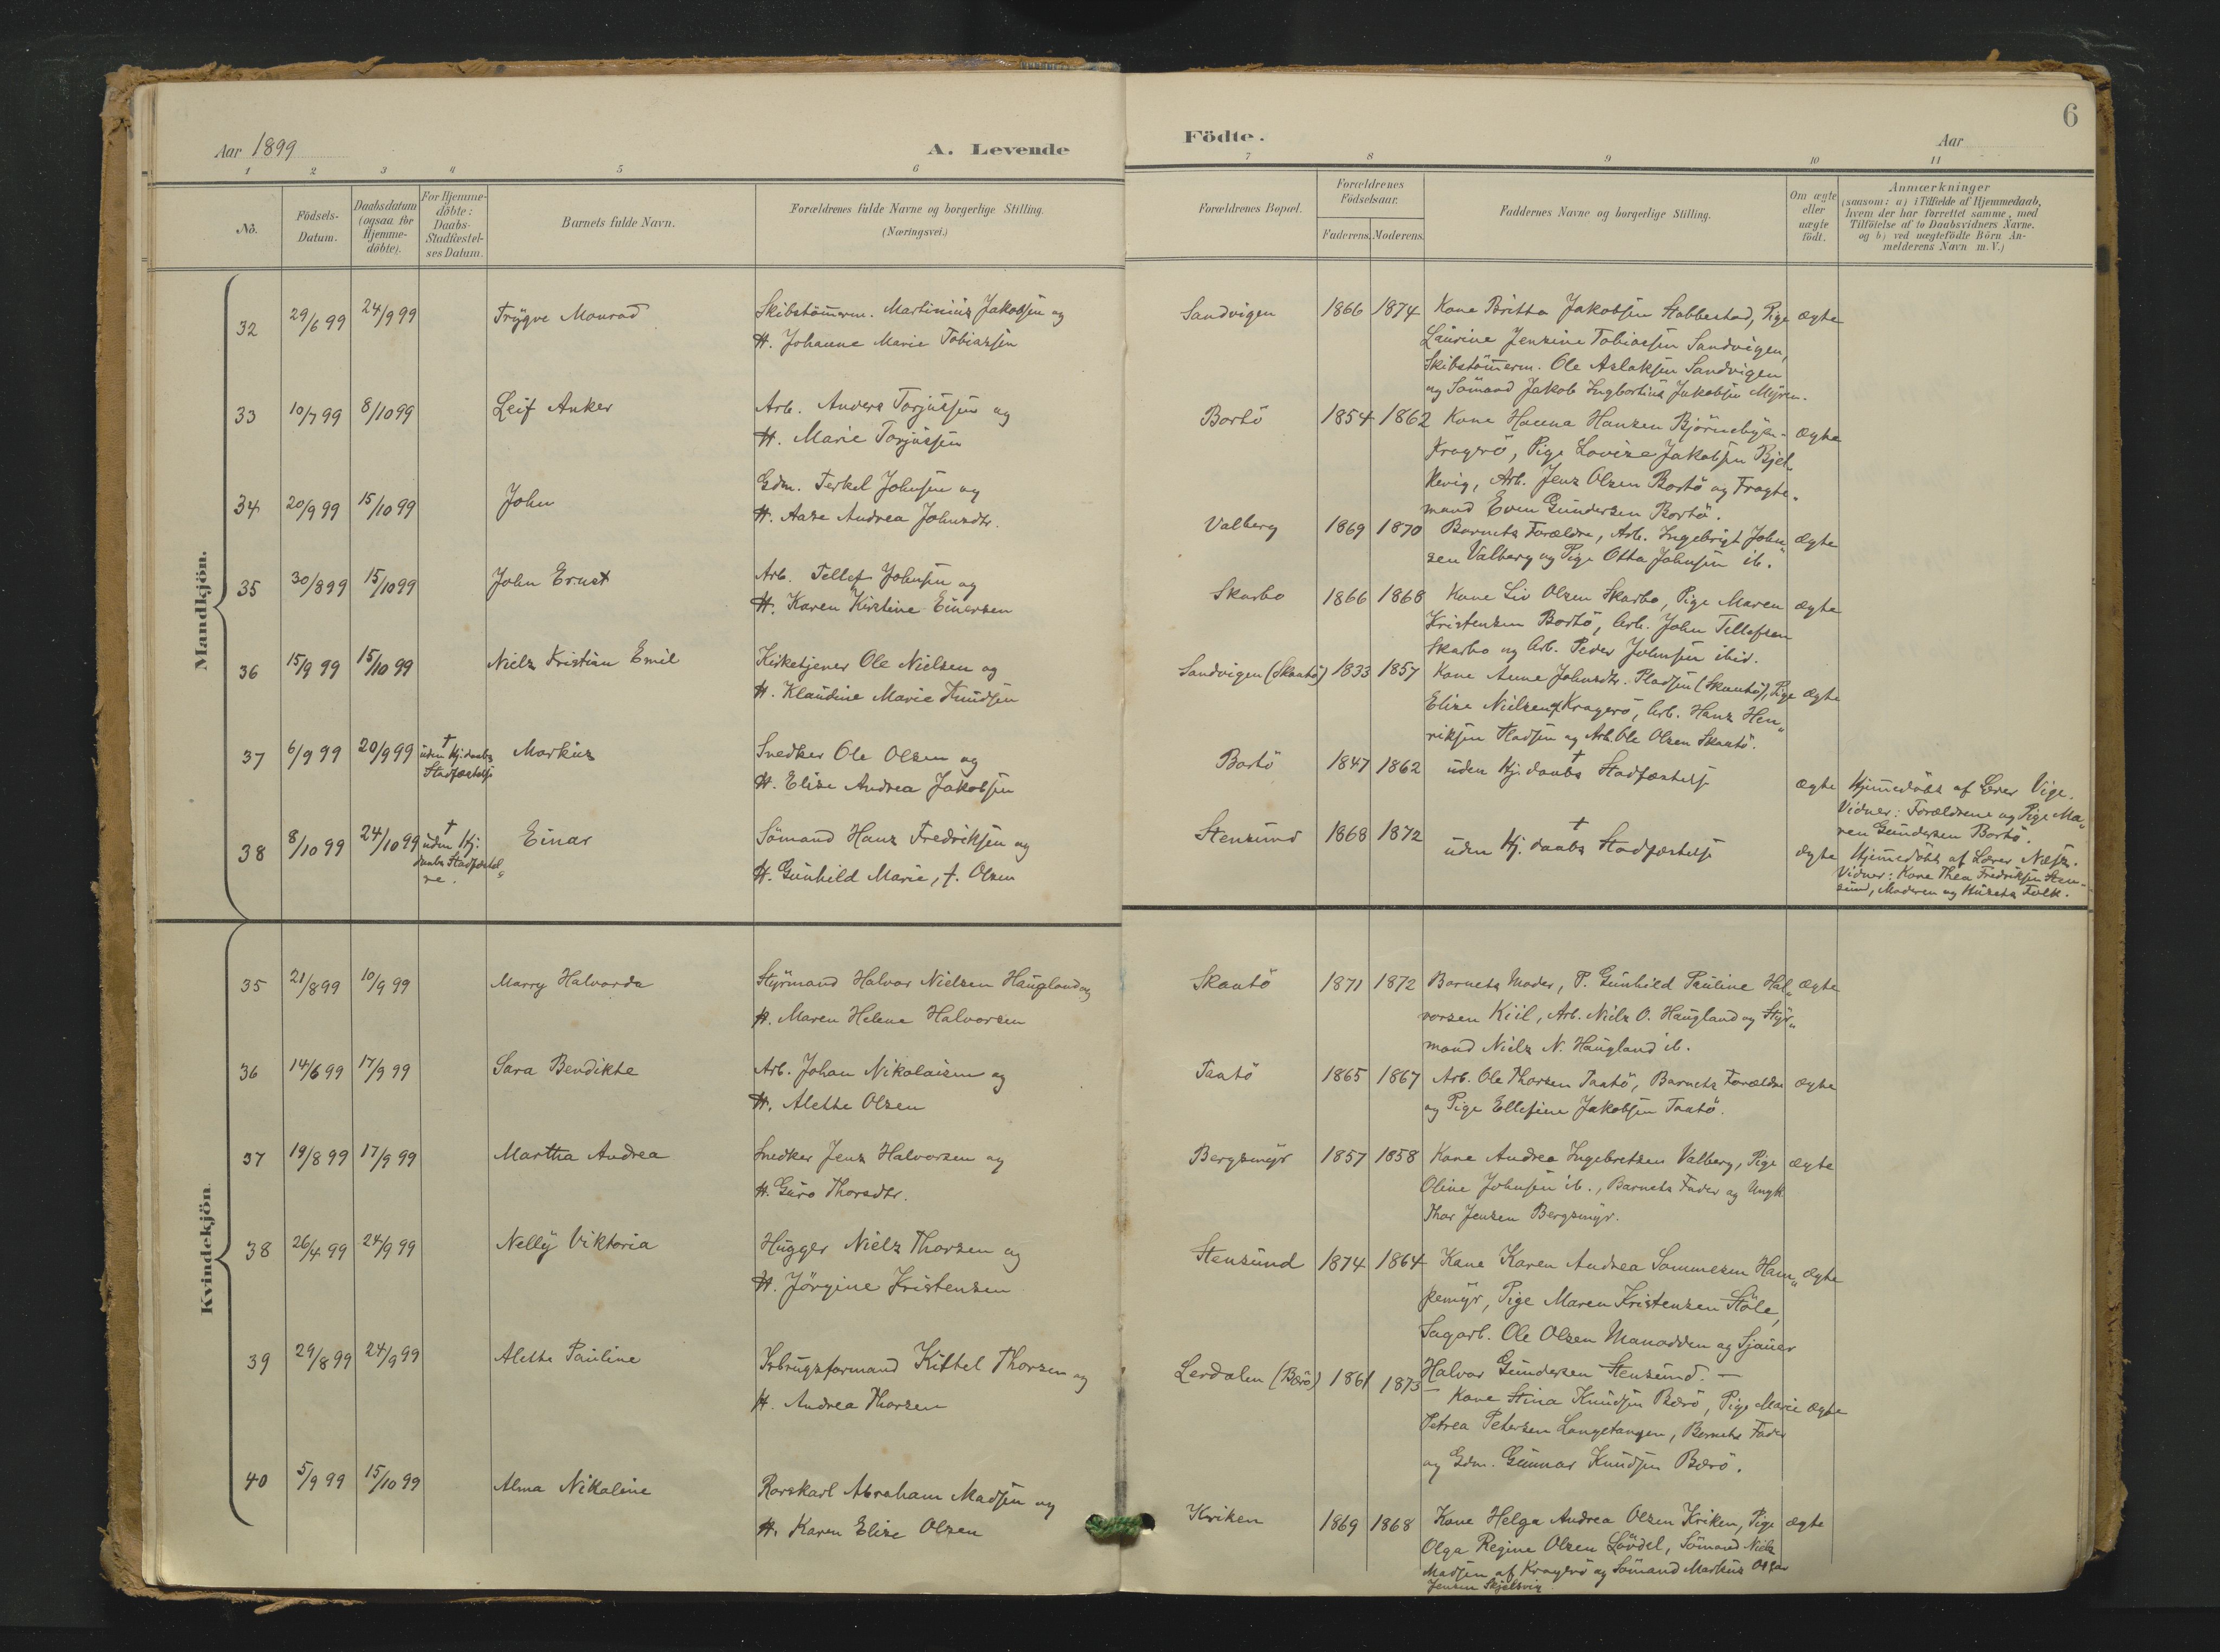 6
Aar 1899
A. Levende
Födte.
Aar
1 2 3 4 5 6 7 8 9 10 11
No.
Födsels-
Datum.
Daabsdatum
(ogsaa for
Hjemme-
döbte).
For Hjemme-
döbte:
Daabs-
Stadfæstel-
ses Datum.
Barnets fulde Navn.
Forældrenes fulde Navne og borgerlige Stilling.
(Næringsvei.)
Forældrenes Bopæl.
Forældrenes
Födselsaar.
Faderens. Moderens.
Faddernes Navne og borgerlige Stilling.
Om ægte
eller
uægte
födt.
Anmærkninger
(saasom: a) i Tilfælde af Hjemmedaab,
hvem der har forrettet samme, med
Tilföielse af to Daabsvidners Navne.
og b) ved uægtefödte Börn An-
melderens Navn m. V.)
Mandkjön.
32 29/6 99 24/9 99 Trÿgve Monrad
Skibstömerm. Martinius Jakobsen og
H. Johanne Marie Tobiassen
Sandvigen 1866 1874
Kone Britta Jakobsen Stabbestad, Pige
Laurine Jensine Tobiassen Sandvigen,
Skibstömerm. Ole Aslaksen Sandvigen
og Sömand Jakob Ingbortius Jakobsen Myren.
ægte
33 10/7 99 8/10 99 Leif Anker
Arb. Anders Torjussen og
H. Marie Torjussen
Bortö 1854 1862
Kone Hanna Hansen Björnebÿen-
Kragerö, Pige Lovise Jakobsen Bjel-
kevig, Arb. Jens Olsen Bortö og Fragte-
mand Even Gundersen Bortö.
ægte
34 20/9 99 15/10 99 John
Gdm. Terkel Johnsen og
H. Aase Andrea Johnsdtr.
Valberg 1869 1870
Barnets Forældre, Arb. Ingebrigt John„
sen Valberg og Pige Otta Johnsen ib.
ægte
35 30/8 99 15/10 99 John Ernst
Arb. Tellef Johnsen og
H. Karen Kirstine Einersen
Skarbo 1866 1868
Kone Liv Olsen Skarbo, Pige Maren
Kristensen Bortö, Arb. John Tellefsen
Skarbo og Arb. Peder Johnsen ibid.
ægte
36 15/9 99 15/10 99 Niels Kristian Emil
Kirketjener Ole Nielsen og
H. Klaudine Marie Knudsen
Sandvigen (Skaatö) 1833 1857
Kone Anne Johnsdtr. Pladsen (Skaatö), Pige
Elise Nielsen af Kragerö, Arb. Hans Hen„
riksen Pladsen og Arb. Ole Olsen Skaatö.
ægte
37 6/9 99 20/9 99
†
uden Hj.daabs
Stadfæstelse
Markus
Snedker Ole Olsen og
H. Elise Andrea Jakobsen
Bortö 1847 1862
†
uden Hj.daabs Stadfæstelse
ægte
Hjemmedöbt af Lærer Vige.
Vidner: Forældrene og Pige Ma„
ren Gundersen Bortö.
38 8/10 99 24/10 99
†
uden Hj.
daabs Stadfæstel„
se.
Einar
Sömand Hans Fredriksen og
H. Gunhild Marie, f. Olsen
Stensund 1868 1872
†
uden Hj. daabs Stadfæstelse
ægte
Hjemmedöbt af Lærer Næss.
Vidner: Kone Thea Fredriksen Sten-
sund, Moderen og Husets Folk.
Kvindekjön.
35 21/8 99 10/9 99 Marry Halvarda
Stÿrmand Halvor Nielsen Haugland og
H. Maren Helene Halvorsen
Skaatö 1871 1872
Barnets Moder, P. Gunhild Pauline Hal„
vorsen Kiil, Arb. Niels O. Haugland og Stÿr„
mand Niels N. Haugland ib.
ægte
36 14/6 99 17/9 99 Sara Bendikte
Arb. Johan Nikolaisen og
H. Alette Olsen
Taatö 1865 1867
Arb. Ole Thorsen Taatö, Barnets Forældre
og Pige Ellefine Jakobsen Taatö.
ægte
37 19/8 99 17/9 99 Martha Andrea
Snedker Jens Halvorsen og
H. Guro Thorsdtr.
Bergsmÿr 1857 1858
Kone Andrea Ingebretsen Valberg, Pige
Oline Johnsen ib., Barnets Fader og Ungk.
Thor Jensen Bergsmÿr.
ægte
38 26/4 99 24/9 99 Nellÿ Viktoria
Hugger Niels Thorsen og
H. Jörgine Kristensen
Stensund 1874 1864
Kone Karen Andrea Sammesen Ham„
pemÿr, Pige Maren Kristensen Stöle,
Sagarb. Ole Olsen Manodden og Sjauer
Halvor Gundersen Stensund. —
ægte
39 29/8 99 24/9 99 Alette Pauline
Isbrugsformand Kittel Thorsen og
H. Andrea Thorsen
Lerdalen (Berö) 1861 1873
— Kone Stina Knudsen Berö, Pige Marie
Petrea Petersen Langetangen, Barnets Fader
og Gdm. Gunnar Knudsen Berö.
ægte
40 5/9 99 15/10 99 Alma Nikoline
Rorskarl Abraham Madsen og
H. Karen Elise Olsen
Kriken 1869 1868
Kone Helga Andrea Olsen Kriken, Pige
Olga Regine Olsen Lövdal, Sömand Niels
Madsen af Kragerö og Sömand Markus Oskar
Jensen Skjelsvig
ægte